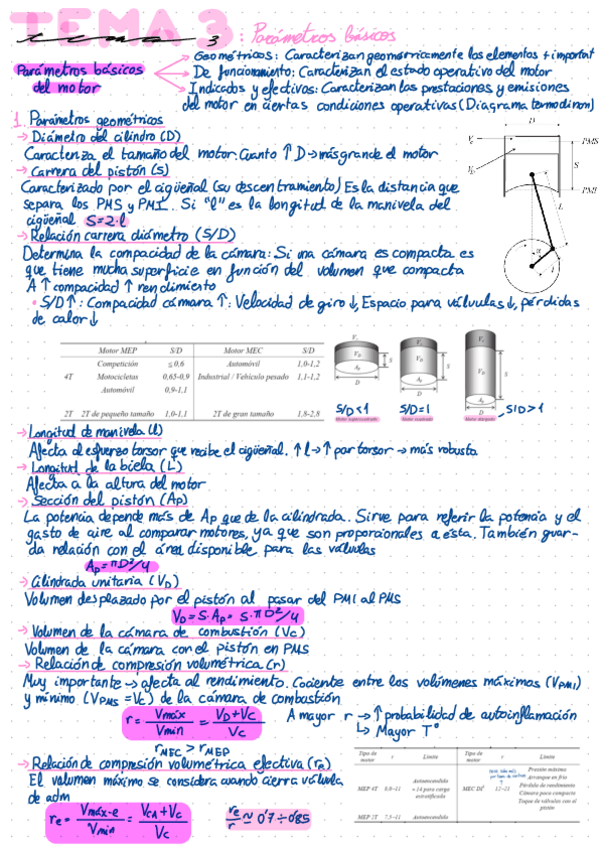 TEMA 3
tema 3 : Parámetros básicos
Parámetros básicos del motor
Geométricos: Caracterizan geométricamente los elementos + important
De funcionamiento: Caracterizan el estado operativo del motor
Indicados y efectivos: Caracterizan las prestaciones y emisiones
del motor en ciertas condiciones operativas (Diagrama termodinam)
1. Parámetros geométricos
→ Diámetro del cilindro (D)
Caracteriza el tamaño del motor. Cuanto ↑ D → más grande el motor
→ Carrera del pistón (S)
Caracterizado por el cigüeñal (su descentramiento) Es la distancia que
separa los PMS y PMI. Si "l" es la longitud de la manivela del
cigüeñal S=2·l
→ Relación carrera diámetro (S/D)
Determina la compacidad de la cámara: Si una cámara es compacta es
que tiene mucha superficie en función del volumen que compacta
A ↑ compacidad ↑ rendimiento
• S/D ↑: Compacidad cámara ↑: Velocidad de giro ↓, Espacio para válvulas ↓, pérdidas
de calor ↓
D
Vc PMS
VD S
PMI
L
α
l
Motor MEP S/D Motor MEC S/D
Competición ≤ 0,6 Automóvil 1,0-1,2
4T Motocicletas 0,65-0,9 Industrial / Vehículo pesado 1,1-1,2
Automóvil 0,9-1,1
2T 2T de pequeño tamaño 1,0-1,1 2T de gran tamaño 1,8-2,8
Vc VD Ap S D
Vc VD Ap S D
Vc VD Ap S D
S/D<1 S/D=1 S/D>1
Motor supercuadrado Motor cuadrado Motor alargado
→ Longitud de manivela (l)
Afecta al esfuerzo torsor que recibe el cigüeñal. ↑ l → ↑ par torsor → más robusta
→ Longitud de la biela (L)
Afecta a la altura del motor
→ Sección del pistón (Ap)
La potencia depende más de Ap que de la cilindrada. Sirve para referir la potencia y el
gasto de aire al comparar motores, ya que son proporcionales a esta. También guar-
da relación con el área disponible para las válvulas
Ap = πD²/4
→ Cilindrada unitaria (VD)
Volumen desplazado por el pistón al pasar del PMI al PMS
VD = S·Ap = S·πD²/4
→ Volumen de la cámara de combustión (Vc)
Volumen de la cámara con el pistón en PMS
→ Relación de compresión volumétrica (r)
Muy importante → afecta al rendimiento. Cociente entre los volúmenes máximos (VPMI)
y mínimo (VPMS = Vc) de la cámara de combustión
r = Vmáx/Vmin = VD+Vc/Vc A mayor r → ↑ probabilidad de autoinflamación
↳ Mayor Tº
rMEC > rMEP
→ Relación de compresión volumétrica efectiva (re)
El volumen máximo se considera cuando cierra válvula
de adm
re = Vmáx-e/Vmin = VCA+Vc/Vc re/r ≃ 0'7 ÷ 0'85
Tipo de motor r Límite Tipo de motor r Límite
MEP 4T 8,0-11 Autoencendido
≈ 14 para carga estratificada
MEC DI 12-15 Presión máxima
Arranque en frío
Pérdida de rendimiento
Cámara poco compacta
Toque de válvulas con el pistón
MEP 2T 7,5-11 Autoencendido